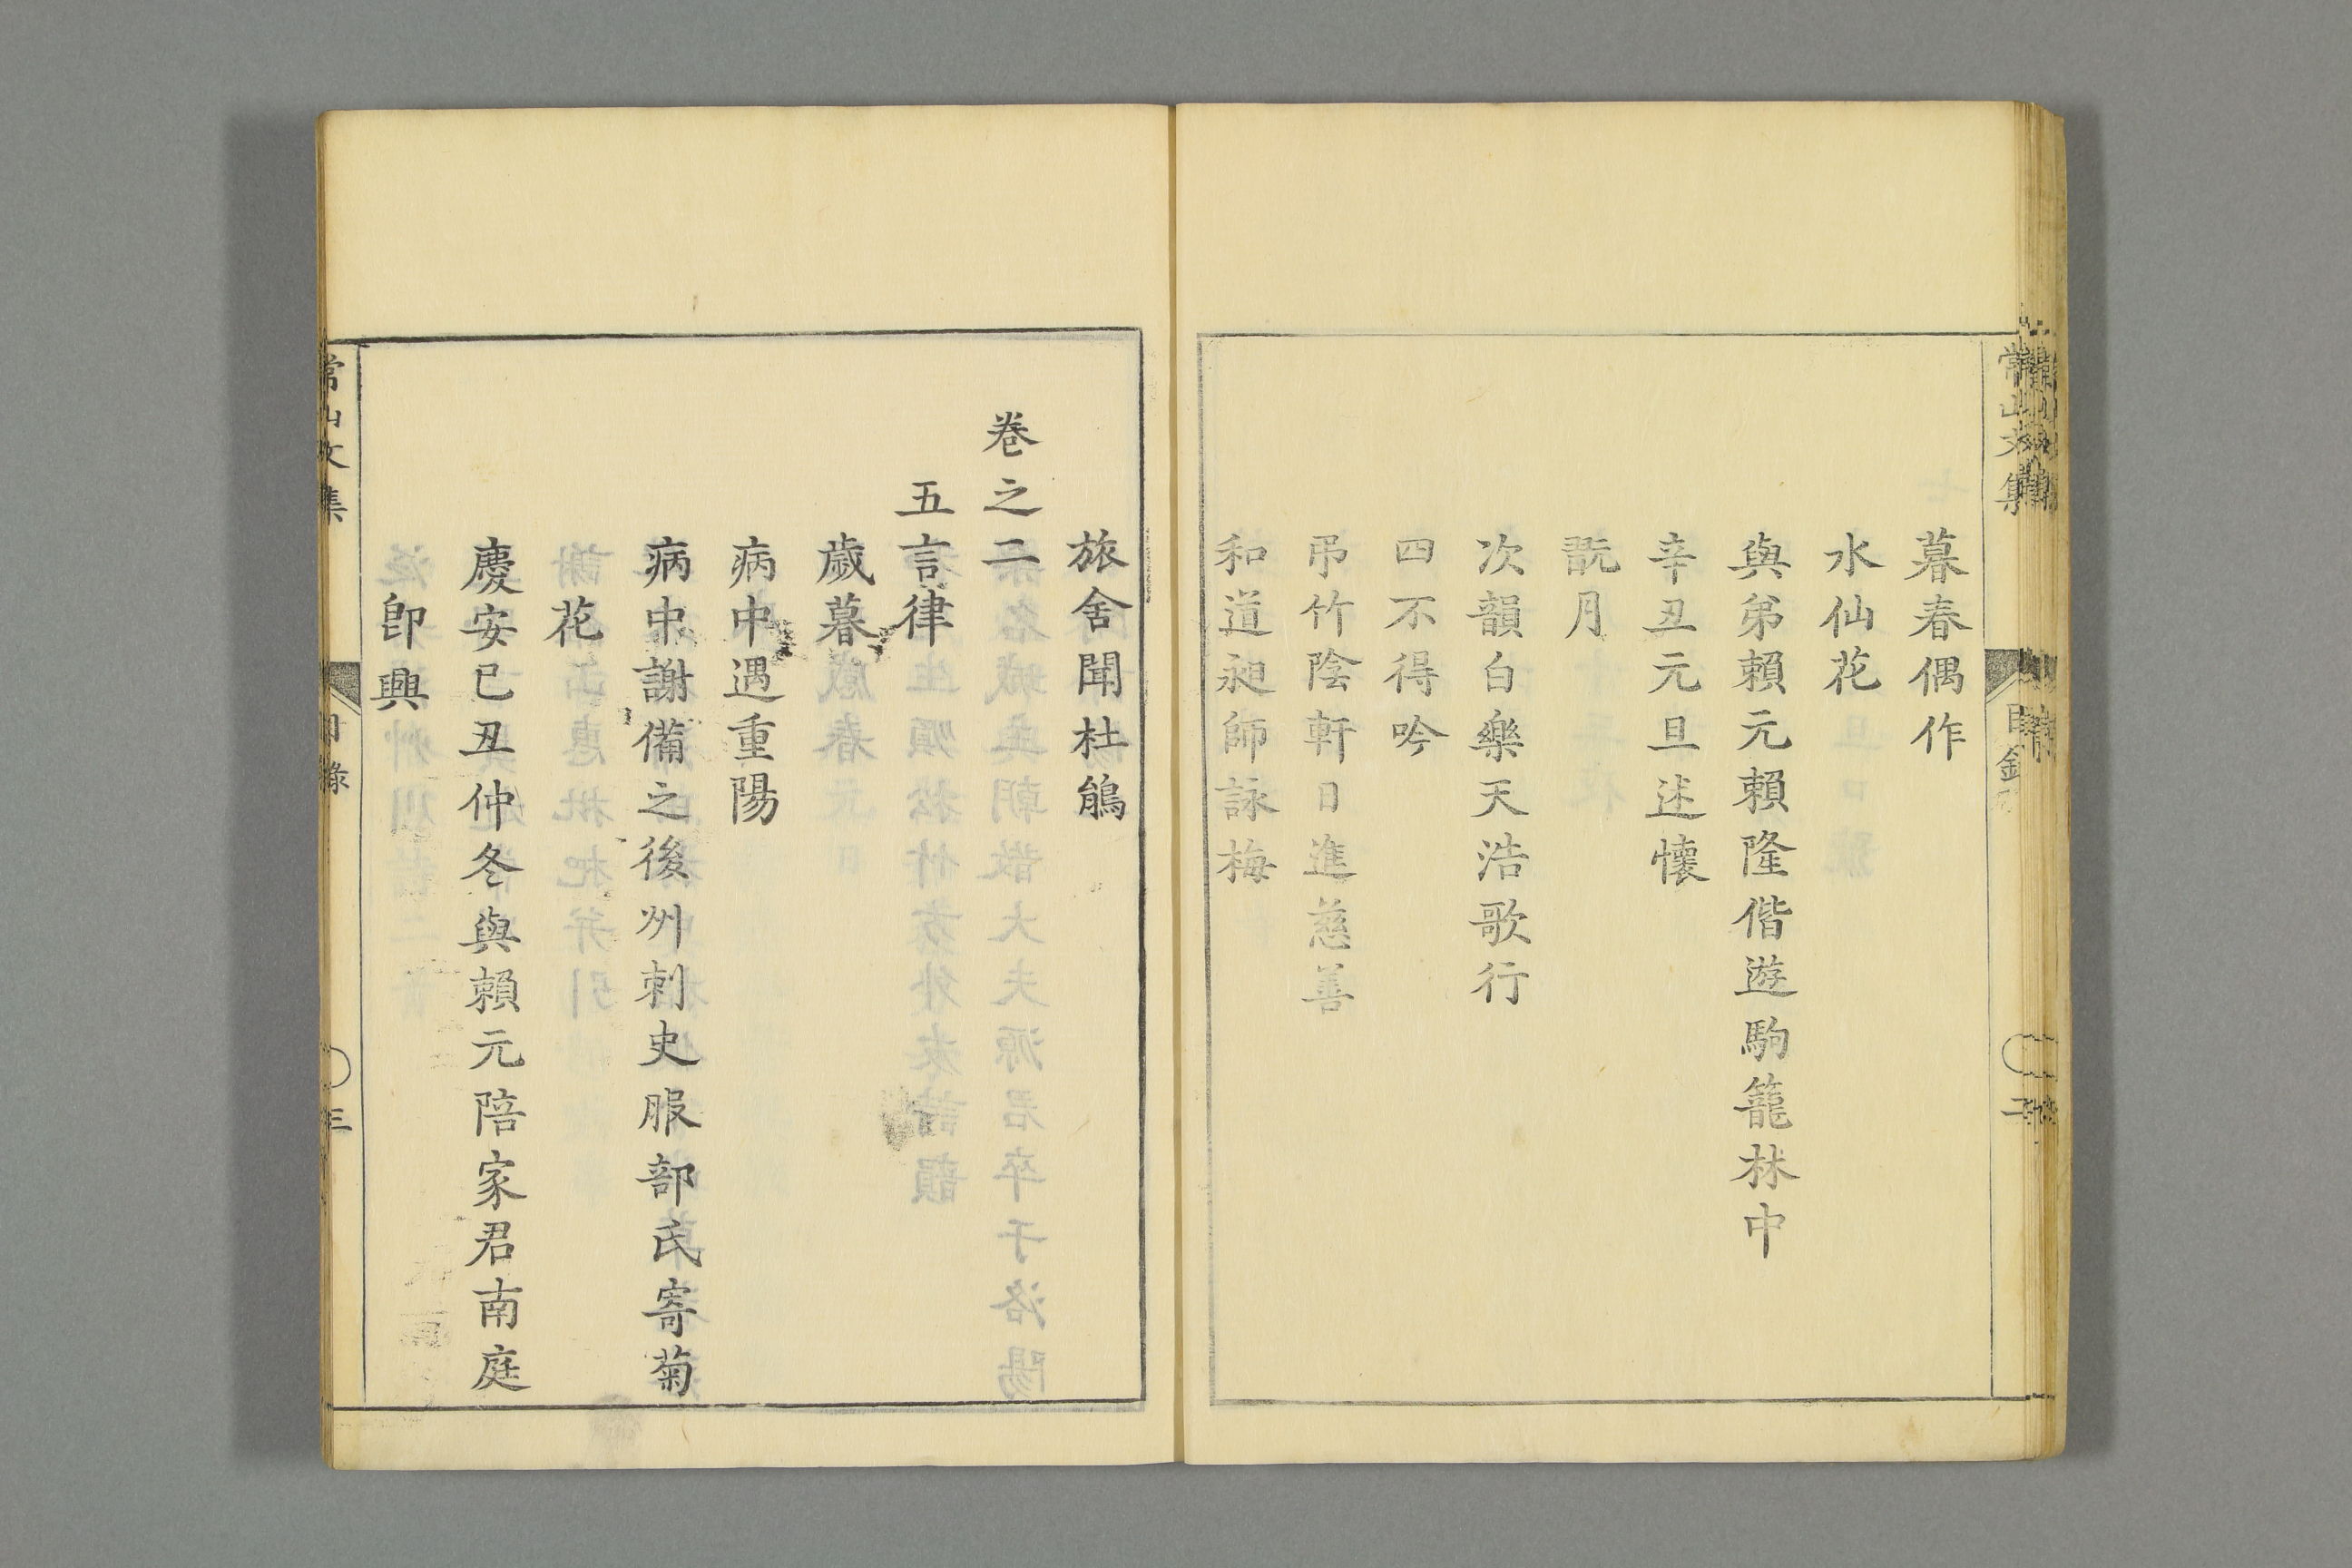 常山文集
目錄
二
暮春偶作
水仙花
與弟賴元賴隆偕遊駒籠林中
辛丑元旦述懷
翫月
次韻白樂天浩歌行
四不得吟
弔竹陰軒日進慈善
和道昶師詠梅
旅舍聞杜鵑
卷之二
五言律
歲暮
病中遇重陽
病中謝備之後州刺史服部氏寄菊
花
慶安己丑仲冬與賴元陪家君南庭
卽興
常山文集
目錄
三